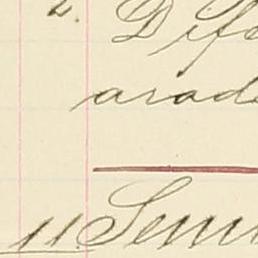 2. Dife
arade
11 Semi